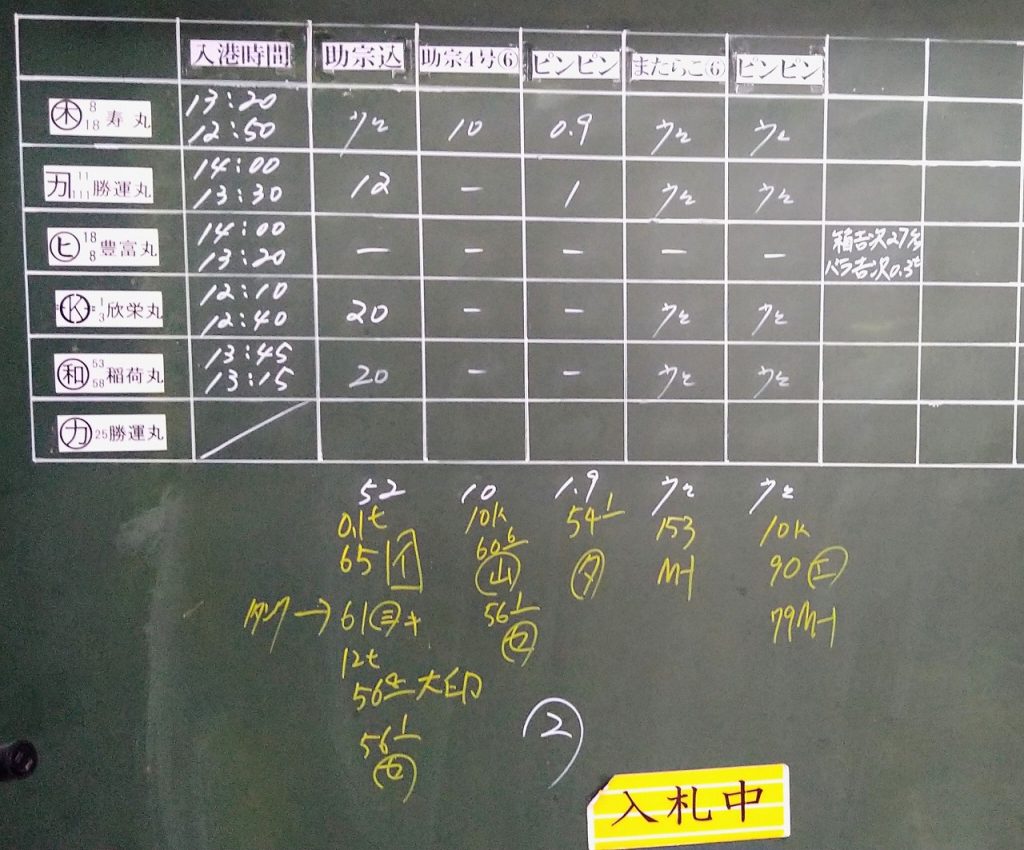 入港時間 助宗込 助宗4号⑥ ピンピン またらこ⑥ ピンピン
木 8 18 寿丸 13:20 12:50 ウヒ 10 0.9 ウヒ ウヒ
カ 11 111 勝運丸 14:00 13:30 12 - 1 ウヒ ウヒ
ヒ 18 8 豊富丸 14:00 13:20 - - - - - 箱吉次27 バラ吉次0.3t
K 1 3 欣栄丸 12:10 12:40 20 - - ウヒ ウヒ
和 53 58 稲荷丸 13:45 13:15 20 - - ウヒ ウヒ
カ 25 勝運丸
52 10 1.9 ウヒ ウヒ
0.1t 10K 54 1 153 10K
65 イ 60 6 山 タ 90 エ
→ 61 ヨキ 56 1 セ 79
12t
56 大印
56 1
セ
2
入札中